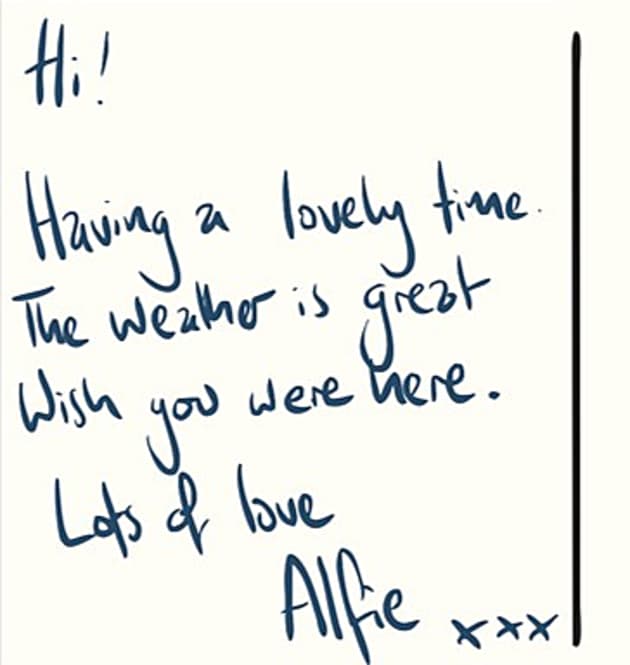 Hi!
Having a lovely time.
The weather is great
Wish you were here.
Lots of love
Alfie xxx